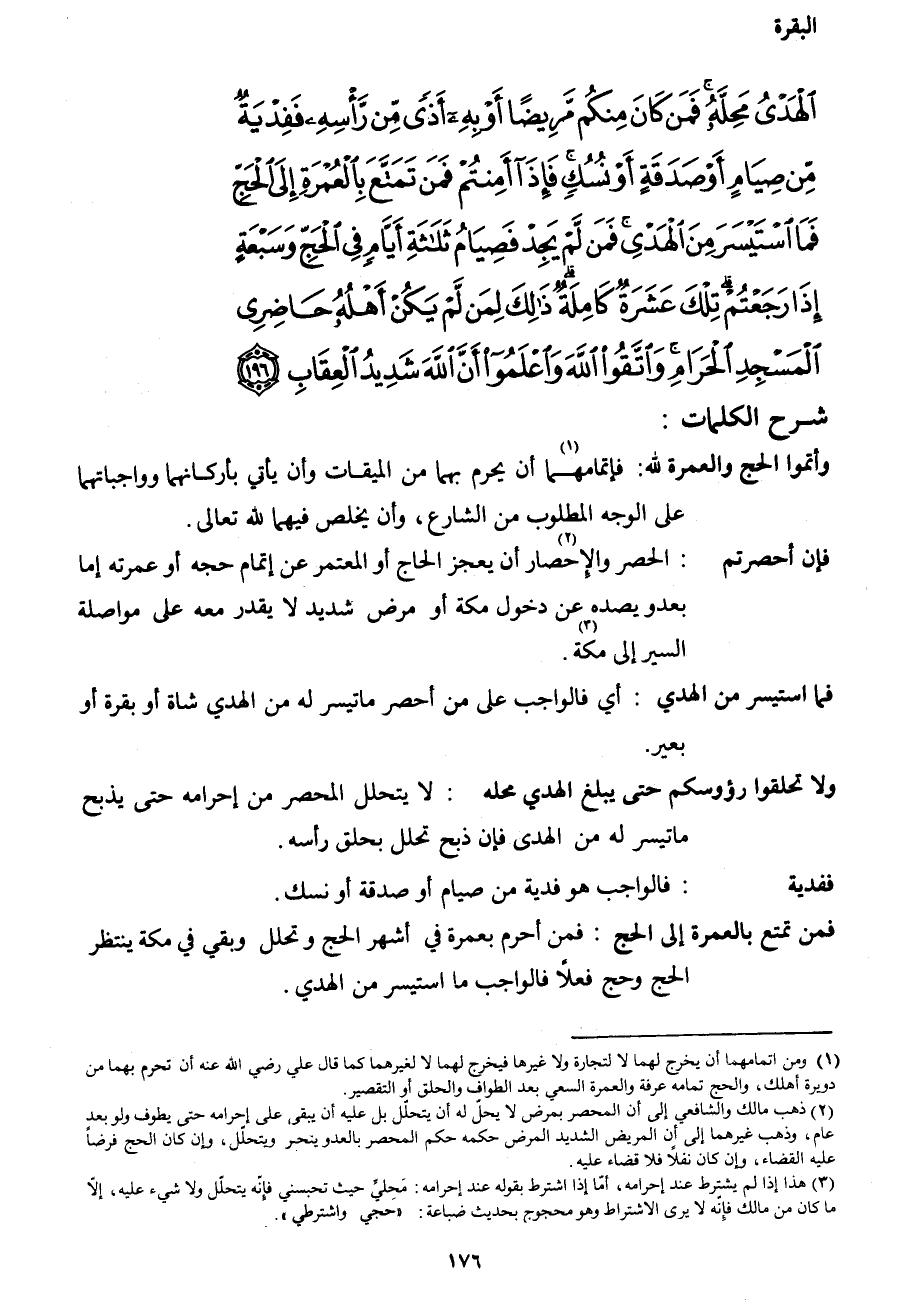 البقرة
ٱلْهَدْىُ مَحِلَّهُۥ ۚ فَمَن كَانَ مِنكُم مَّرِيضًا أَوْ بِهِۦٓ أَذًى مِّن رَّأْسِهِۦ فَفِدْيَةٌ
مِّن صِيَامٍ أَوْ صَدَقَةٍ أَوْ نُسُكٍ ۚ فَإِذَآ أَمِنتُمْ فَمَن تَمَتَّعَ بِٱلْعُمْرَةِ إِلَى ٱلْحَجِّ
فَمَا ٱسْتَيْسَرَ مِنَ ٱلْهَدْىِ ۚ فَمَن لَّمْ يَجِدْ فَصِيَامُ ثَلَٰثَةِ أَيَّامٍ فِى ٱلْحَجِّ وَسَبْعَةٍ
إِذَا رَجَعْتُمْ ۗ تِلْكَ عَشَرَةٌ كَامِلَةٌ ۗ ذَٰلِكَ لِمَن لَّمْ يَكُنْ أَهْلُهُۥ حَاضِرِى
ٱلْمَسْجِدِ ٱلْحَرَامِ ۚ وَٱتَّقُوا۟ ٱللَّهَ وَٱعْلَمُوٓا۟ أَنَّ ٱللَّهَ شَدِيدُ ٱلْعِقَابِ ١٩٦
شرح الكلمات :
وأتموا الحج والعمرة لله: فإتمامهما (١) أن يحرم بهما من الميقات وأن يأتي بأركانهما وواجباتهما
على الوجه المطلوب من الشارع، وأن يخلص فيهما لله تعالى.
فإن أحصرتم : الحصر والإحصار (٢) أن يعجز الحاج أو المعتمر عن إتمام حجه أو عمرته إما
بعدو يصده عن دخول مكة أو مرض شديد لا يقدر معه على مواصلة
السير إلى مكة (٣).
فما استيسر من الهدي : أي فالواجب على من أحصر ماتيسر له من الهدي شاة أو بقرة أو
بعير.
ولا تحلقوا رؤوسكم حتى يبلغ الهدي محله : لا يتحلل المحصر من إحرامه حتى يذبح
ماتيسر له من الهدى فإن ذبح تحلل بحلق رأسه.
ففدية : فالواجب هو فدية من صيام أو صدقة أو نسك.
فمن تمتع بالعمرة إلى الحج : فمن أحرم بعمرة في أشهر الحج وتحلل وبقي في مكة ينتظر
الحج وحج فعلًا فالواجب ما استيسر من الهدي.
(١) ومن اتمامهما أن يخرج لهما لا لتجارة ولا غيرها فيخرج لهما لا لغيرهما كما قال علي رضي الله عنه أن تحرم بهما من
دويرة أهلك، والحج تمامه عرفة والعمرة السعي بعد الطواف والحلق أو التقصير.
(٢) ذهب مالك والشافعي إلى أن المحصر بمرض لا يحلّ له أن يتحلّل بل عليه أن يبقى على إحرامه حتى يطوف ولو بعد
عام، وذهب غيرهما إلى أن المريض الشديد المرض حكمه حكم المحصر بالعدو ينحر ويتحلّل، وإن كان الحج فرضاً
عليه القضاء، وإن كان نفلًا فلا قضاء عليه.
(٣) هذا إذا لم يشترط عند إحرامه، أمّا إذا اشترط بقوله عند إحرامه: مَحِليّ حيث تحبسني فإنّه يتحلّل ولا شيء عليه، إلّا
ما كان من مالك فإنّه لا يرى الاشتراط وهو محجوج بحديث ضباعة: «حجي واشترطي».
١٧٦